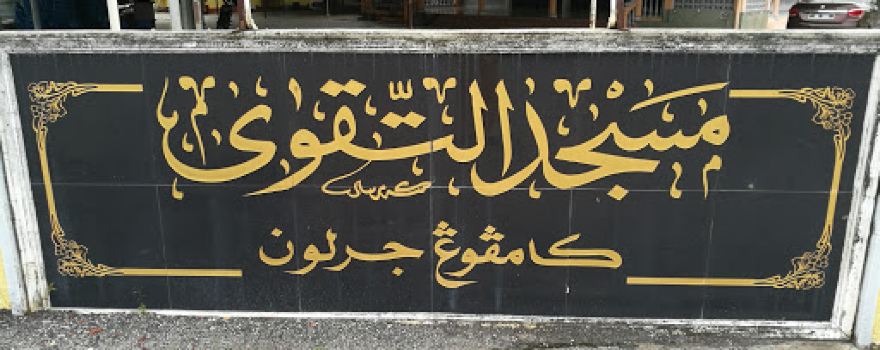 مَسْجِد التَّقْوَى
كامڤوڠ جرلون